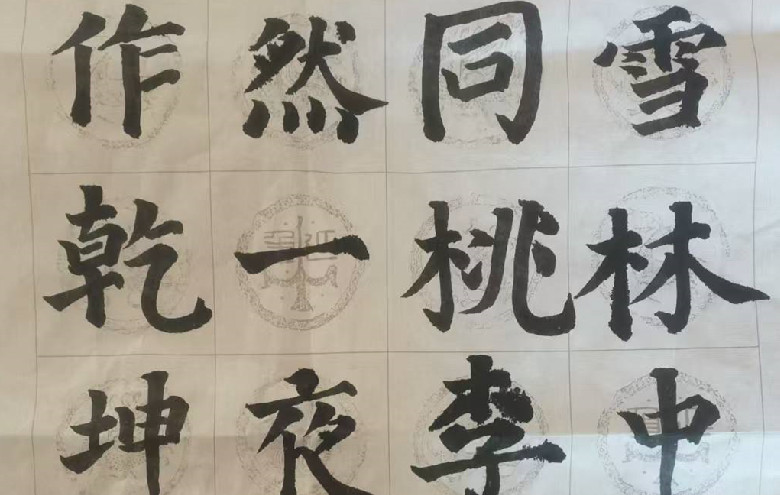 雪林中
同桃李
然一夜
作乾坤